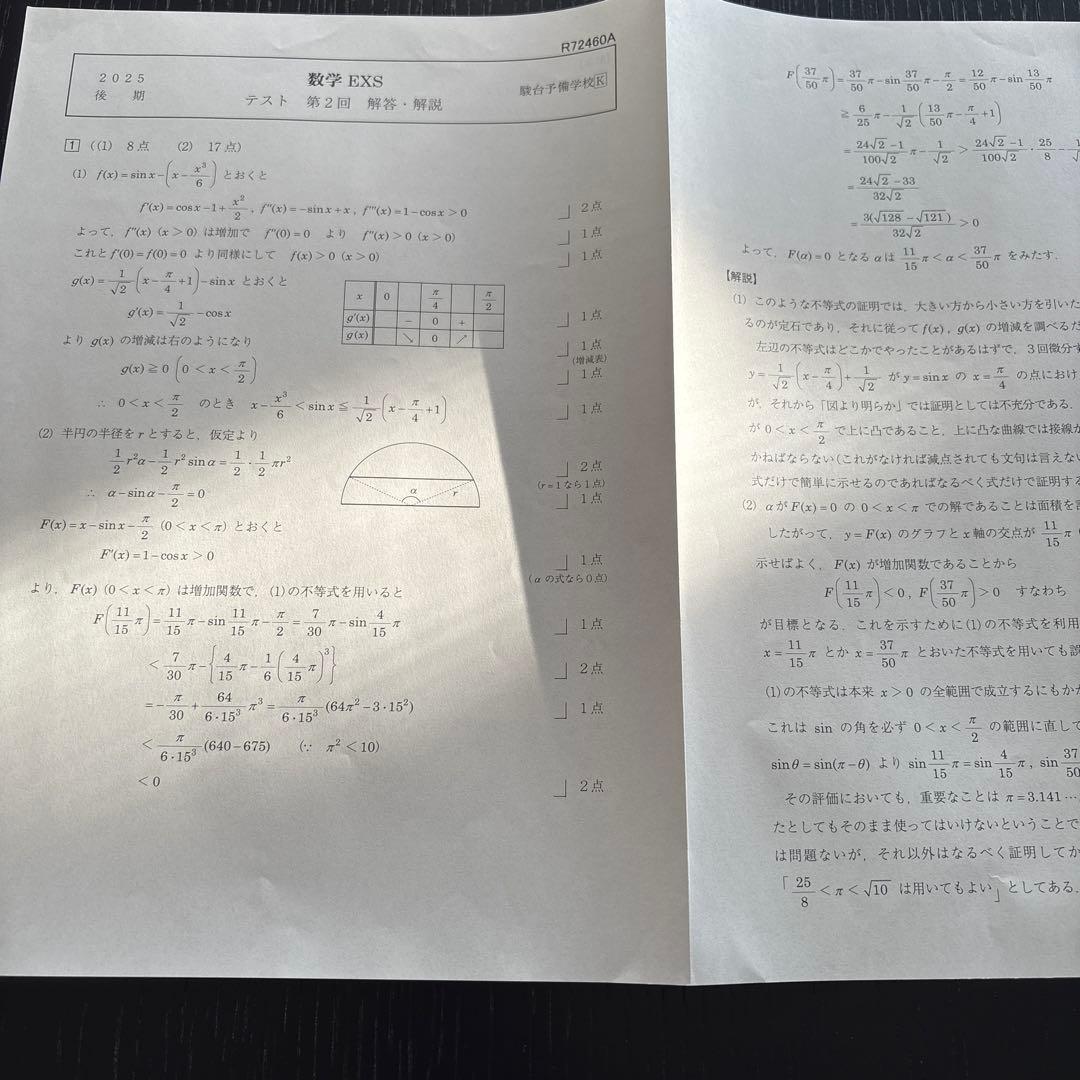 R72460A
2025
後 期
数学 EXS
テスト 第2回 解答・解説
駿台予備学校K
1 ((1) 8点 (2) 17点)
(1) f(x)=sinx-(x-x³/6) とおくと
f′(x)=cosx-1+x²/2, f″(x)=-sinx+x, f‴(x)=1-cosx>0 2点
よって, f″(x) (x>0) は増加で f″(0)=0 より f″(x)>0 (x>0) 1点
これと f′(0)=f(0)=0 より同様にして f(x)>0 (x>0) 1点
g(x)=1/√2(x-π/4+1)-sinx とおくと
g′(x)=1/√2-cosx 1点
x 0 π/4 π/2
g′(x) - 0 +
g(x) ↘ 0 ↗
より g(x) の増減は右のようになり 1点
(増減表)
g(x)≧0 (0<x<π/2) 1点
∴ 0<x<π/2 のとき x-x³/6<sinx≦1/√2(x-π/4+1) 1点
(2) 半円の半径を r とすると, 仮定より
1/2r²α-1/2r²sinα=1/2・1/2πr² 2点
(r=1なら1点)
∴ α-sinα-π/2=0 1点
α r
F(x)=x-sinx-π/2 (0<x<π) とおくと
F′(x)=1-cosx>0 1点
(αの式なら0点)
より, F(x) (0<x<π) は増加関数で, (1)の不等式を用いると
F(11/15π)=11/15π-sin11/15π-π/2=7/30π-sin4/15π 1点
<7/30π-{4/15π-1/6(4/15π)³} 2点
=-π/30+64/6・15³π³=π/6・15³(64π²-3・15²) 1点
<π/6・15³(640-675) (∵ π²<10)
<0 2点
F(37/50π)=37/50π-sin37/50π-π/2=12/50π-sin13/50π
≧6/25π-1/√2(13/50π-π/4+1)
=24√2-1/100√2π-1/√2>24√2-1/100√2・25/8-
=24√2-33/32√2
=3(√128-√121)/32√2>0
よって, F(α)=0 となる α は 11/15π<α<37/50π をみたす.
【解説】
(1) このような不等式の証明では, 大きい方から小さい方を引いた
るのが定石であり, それに従って f(x), g(x) の増減を調べるだ
左辺の不等式はどこかでやったことがあるはずで, 3回微分す
y=1/√2(x-π/4)+1/√2 が y=sinx の x=π/4 の点におけ
が, それから「図より明らか」では証明としては不充分である.
が 0<x<π/2 で上に凸であること, 上に凸な曲線では接線が
かねばならない(これがなければ減点されても文句は言えない
式だけで簡単に示せるのであればなるべく式だけで証明する
(2) α が F(x)=0 の 0<x<π での解であることは面積を
したがって, y=F(x) のグラフと x 軸の交点が 11/15π
示せばよく, F(x) が増加関数であることから
F(11/15π)<0, F(37/50π)>0 すなわち
が目標となる. これを示すために(1)の不等式を利用
x=11/15π とか x=37/50π とおいた不等式を用いても誤
(1)の不等式は本来 x>0 の全範囲で成立するにもかか
これは sin の角を必ず 0<x<π/2 の範囲に直して
sinθ=sin(π-θ) より sin11/15π=sin4/15π, sin37/50
その評価においても, 重要なことは π=3.141…
たとしてもそのまま使ってはいけないということで
は問題ないが, それ以外はなるべく証明してか
「25/8<π<√10 は用いてもよい」としてある.